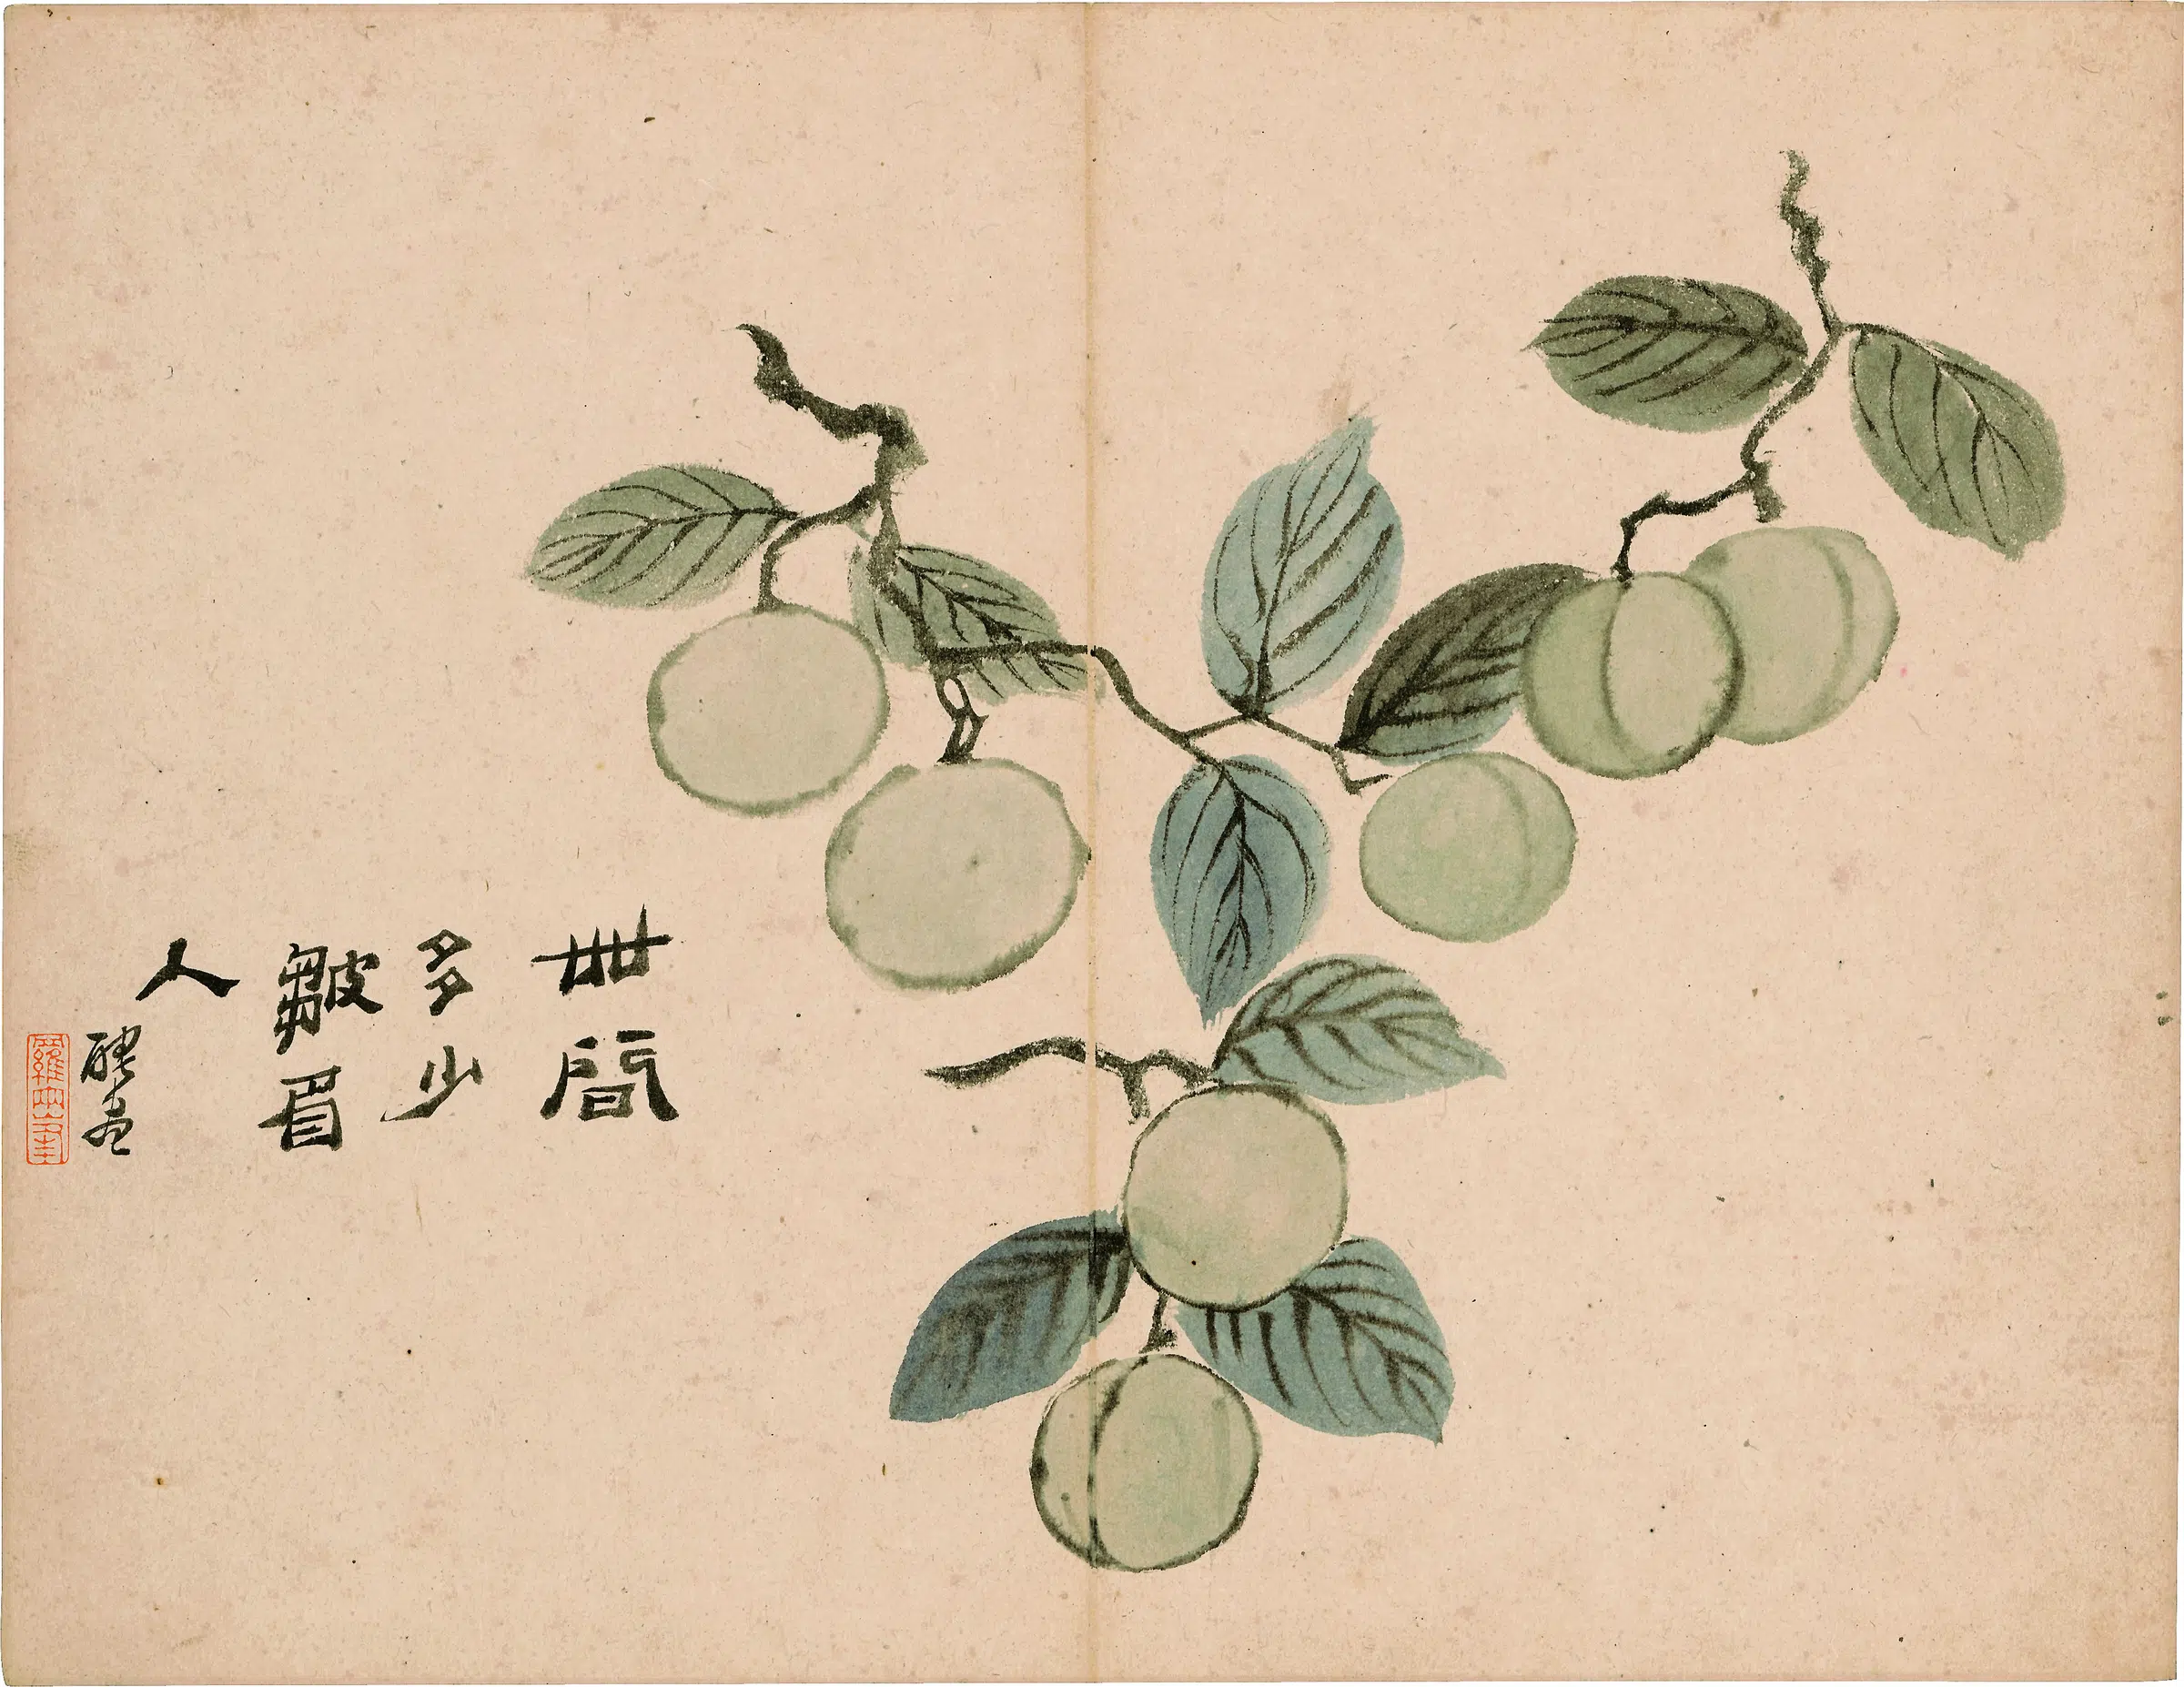 世間
多少
皺眉
人
聘畫
羅兩峯